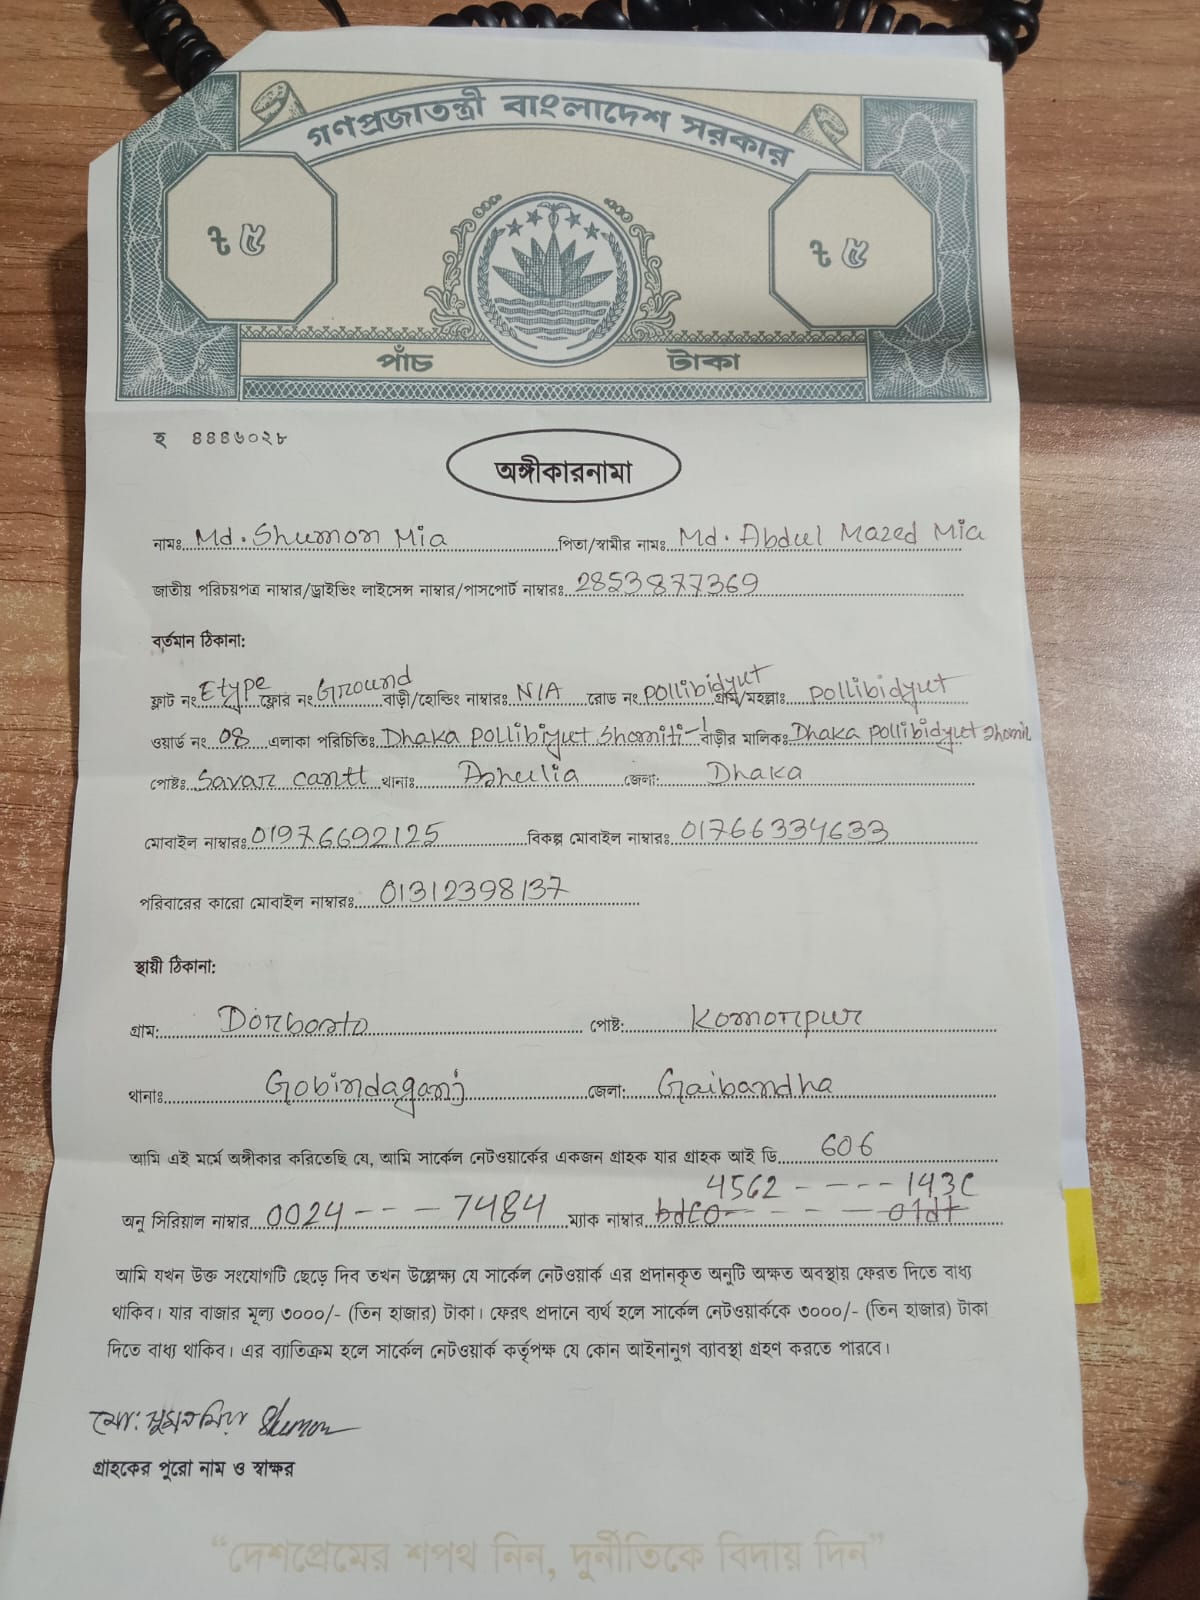 গণপ্রজাতন্ত্রী বাংলাদেশ সরকার
৳ ৫ ৳ ৫
পাঁচ টাকা
হ ৪৪৪৬০২৮
অঙ্গীকারনামা
নামঃ Md. Shumon Mia পিতা/স্বামীর নামঃ Md. Abdul Mazed Mia
জাতীয় পরিচয়পত্র নাম্বার/ড্রাইভিং লাইসেন্স নাম্বার/পাসপোর্ট নাম্বারঃ 2853877369
বর্তমান ঠিকানা:
ফ্লাট নং Etype ফ্লোর নং Ground বাড়ী/হোল্ডিং নাম্বারঃ N/A রোড নং pollibidyut গ্রাম/মহল্লাঃ pollibidyut
ওয়ার্ড নং 08 এলাকা পরিচিতিঃ Dhaka pollibiyut Shomiti-1 বাড়ীর মালিকঃ Dhaka pollibidyut
পোষ্টঃ Savar cantt থানাঃ Asheulia জেলা: Dhaka
মোবাইল নাম্বারঃ 01976692125 বিকল্প মোবাইল নাম্বারঃ 01766334633
পরিবারের কারো মোবাইল নাম্বারঃ 01312398137
স্থায়ী ঠিকানা:
গ্রাম: Dorbosto পোষ্ট: Komorpur
থানাঃ Gobindaganj জেলা: Gaibandha
আমি এই মর্মে অঙ্গীকার করিতেছি যে, আমি সার্কেল নেটওয়ার্কের একজন গ্রাহক যার গ্রাহক আই ডি 606
4562 - - - - 143C
অনু সিরিয়াল নাম্বার 0024 - - - 7484 ম্যাক নাম্বার
আমি যখন উক্ত সংযোগটি ছেড়ে দিব তখন উল্লেক্ষ্য যে সার্কেল নেটওয়ার্ক এর প্রদানকৃত অনুটি অক্ষত অবস্থায় ফেরত দিতে বাধ্য
থাকিব। যার বাজার মূল্য ৩০০০/- (তিন হাজার) টাকা। ফেরৎ প্রদানে ব্যর্থ হলে সার্কেল নেটওয়ার্ককে ৩০০০/- (তিন হাজার) টাকা
দিতে বাধ্য থাকিব। এর ব্যাতিক্রম হলে সার্কেল নেটওয়ার্ক কর্তৃপক্ষ যে কোন আইনানুগ ব্যাবস্থা গ্রহণ করতে পারবে।
মো: সুমন মিয়া Shumon
গ্রাহকের পুরো নাম ও স্বাক্ষর
“দেশপ্রেমের শপথ নিন, দুর্নীতিকে বিদায় দিন”